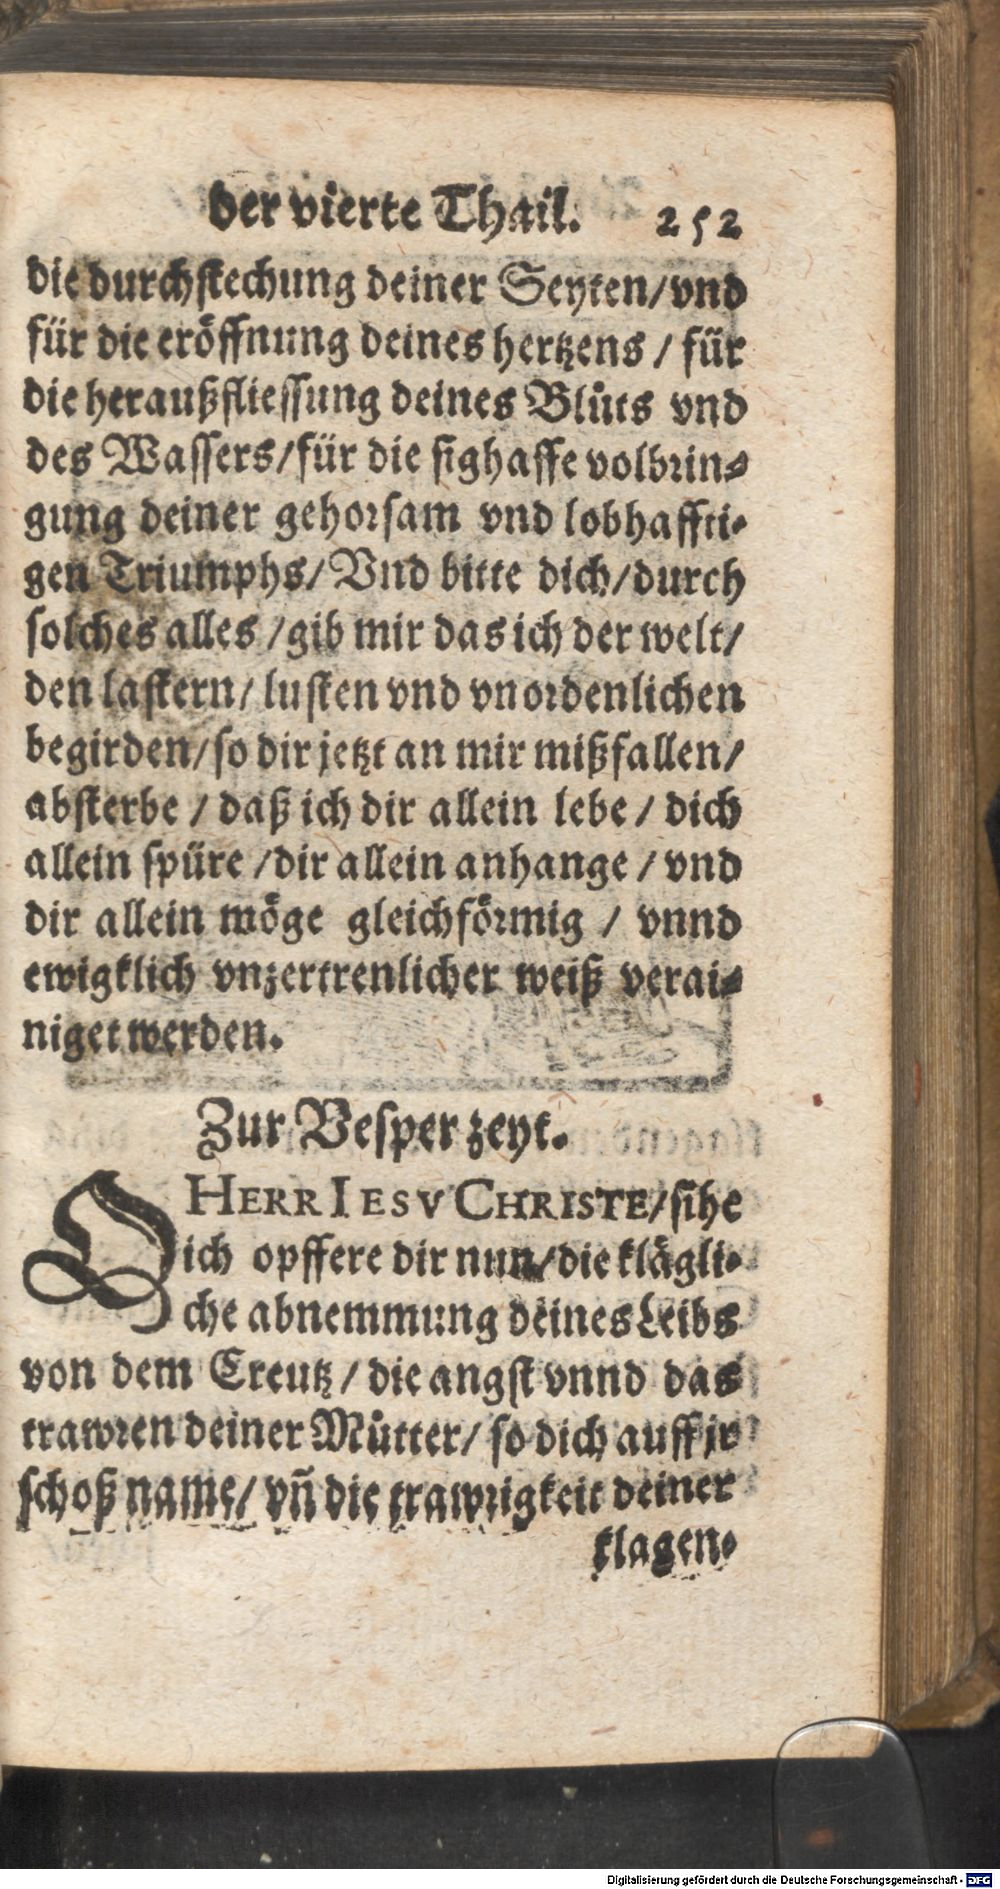 der vierte Thail. 252
die durchstechung deiner Seyten/vnd
für die eröffnung deines hertzens / für
die heraußfliessung deines Blůts vnd
des Wassers/für die sighaffe volbrin⸗
gung deiner gehorsam vnd lobhaffti⸗
gen Triumphs/ Vnd bitte dich/durch
solches alles /gib mir das ich der welt/
den lastern/ lusten vnd vnordenlichen
begirden/so dir jetzt an mir mißfallen/
absterbe / daß ich dir allein lebe / dich
allein spüre /dir allein anhange / vnd
dir allein möge gleichförmig / vnnd
ewigklich vnzertrenlicher weiß verai⸗
niget werden.
Zur Vesper zeyt.
O HERR IESV CHRISTE/sihe
ich opffere dir nun/die klägli⸗
che abnemmung deines Leibs
von dem Creutz / die angst vnnd das
trawren deiner Můtter/ so dich auff jr
schoß name/ vñ die trawrigkeit deiner
klagen⸗
Digitalisierung gefördert durch die Deutsche Forschungsgemeinschaft - DFG